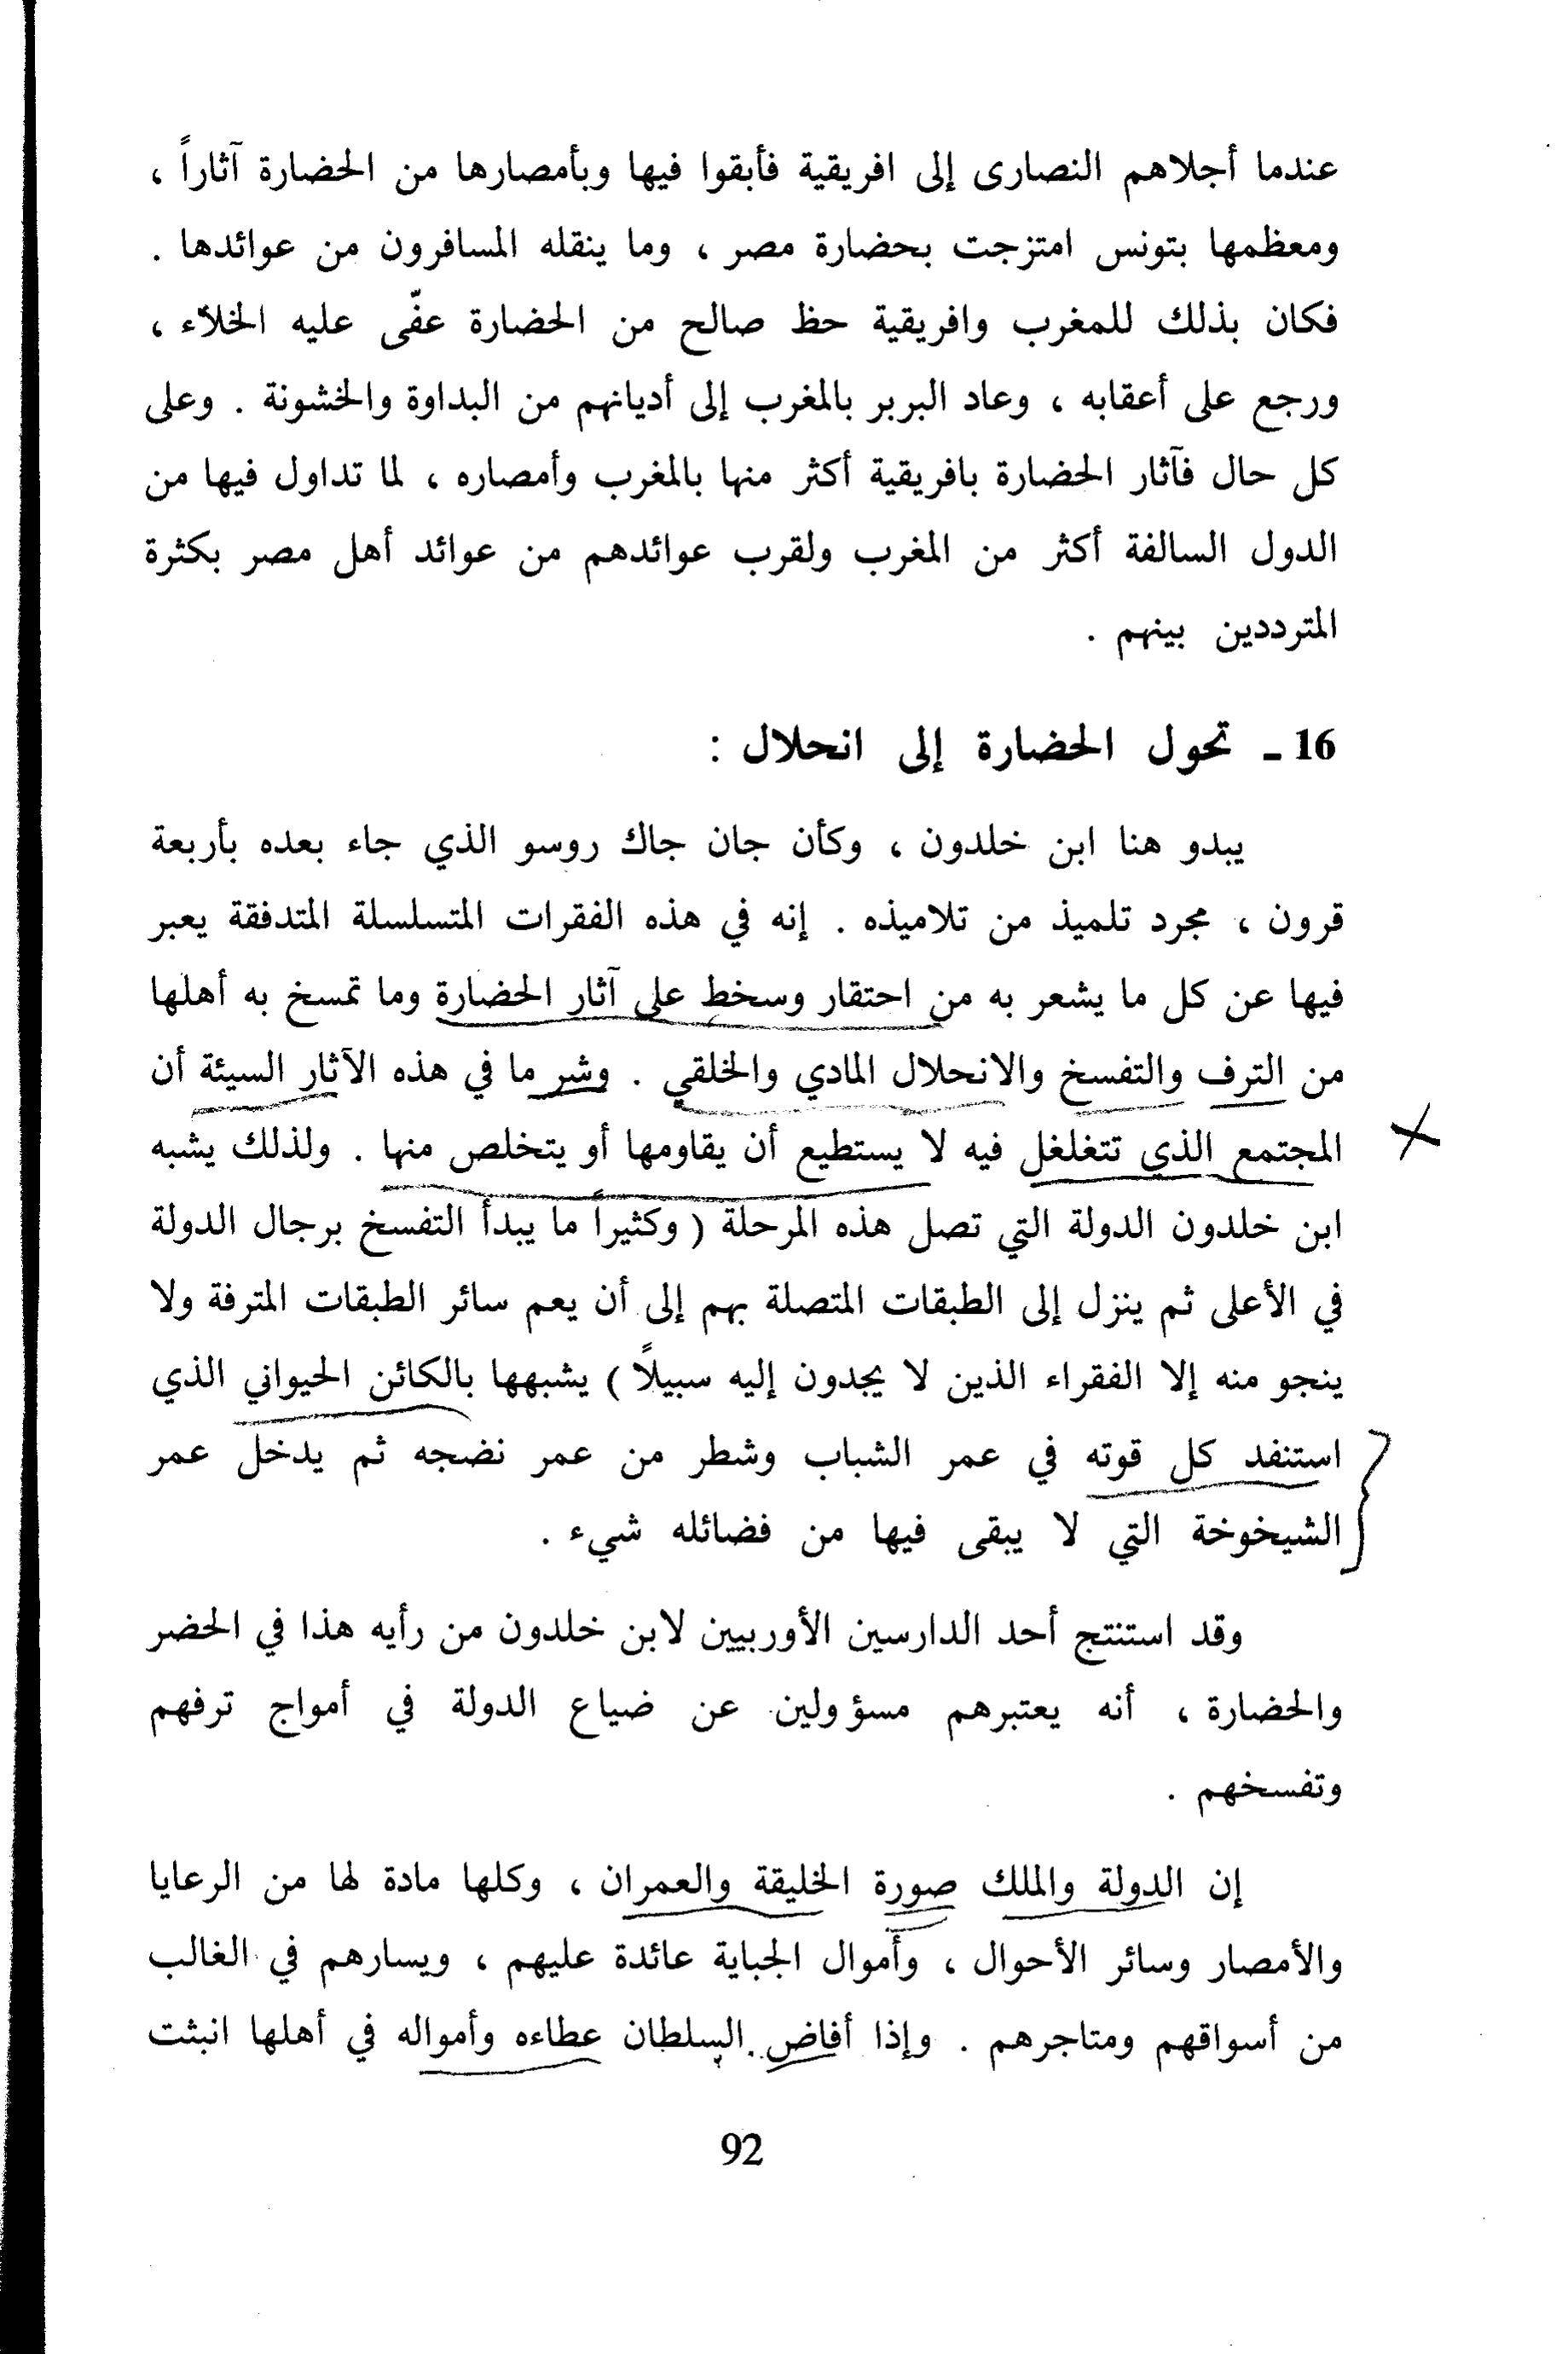 عندما أجلاهم النصارى إلى افريقية فأبقوا فيها وبأمصارها من الحضارة آثاراً ،
ومعظمها بتونس امتزجت بحضارة مصر ، وما ينقله المسافرون من عوائدها .
فكان بذلك للمغرب وافريقية حظ صالح من الحضارة عفّى عليه الخلاء ،
ورجع على أعقابه ، وعاد البربر بالمغرب إلى أديانهم من البداوة والخشونة . وعلى
كل حال فآثار الحضارة بافريقية أكثر منها بالمغرب وأمصاره ، لما تداول فيها من
الدول السالفة أكثر من المغرب ولقرب عوائدهم من عوائد أهل مصر بكثرة
المترددين بينهم .
16 ـ تحول الحضارة إلى انحلال :
يبدو هنا ابن خلدون ، وكأن جان جاك روسو الذي جاء بعده بأربعة
قرون ، مجرد تلميذ من تلاميذه . إنه في هذه الفقرات المتسلسلة المتدفقة يعبر
فيها عن كل ما يشعر به من احتقار وسخط على آثار الحضارة وما تمسخ به أهلها
من الترف والتفسخ والانحلال المادي والخلقي . وشر ما في هذه الآثار السيئة أن
المجتمع الذي تتغلغل فيه لا يستطيع أن يقاومها أو يتخلص منها . ولذلك يشبه
ابن خلدون الدولة التي تصل هذه المرحلة ( وكثيراً ما يبدأ التفسخ برجال الدولة
في الأعلى ثم ينزل إلى الطبقات المتصلة بهم إلى أن يعم سائر الطبقات المترفة ولا
ينجو منه إلا الفقراء الذين لا يجدون إليه سبيلاً ) يشبهها بالكائن الحيواني الذي
استنفد كل قوته في عمر الشباب وشطر من عمر نضجه ثم يدخل عمر
الشيخوخة التي لا يبقى فيها من فضائله شيء .
وقد استنتج أحد الدارسين الأوربيين لابن خلدون من رأيه هذا في الحضر
والحضارة ، أنه يعتبرهم مسؤولين عن ضياع الدولة في أمواج ترفهم
وتفسخهم .
إن الدولة والملك صورة الخليقة والعمران ، وكلها مادة لها من الرعايا
والأمصار وسائر الأحوال ، وأموال الجباية عائدة عليهم ، ويسارهم في الغالب
من أسواقهم ومتاجرهم . وإذا أفاض السلطان عطاءه وأمواله في أهلها انبثت
92